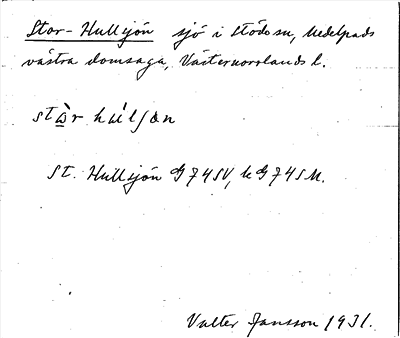 Stor-Hullsjön sjö i Stöde sn, Medelpads
västra domsaga, Västernorrlands l.
stὼr húlʃөn
St. Hullsjön G 74 SV, k G 74 SM.
Valter Jansson 1931.